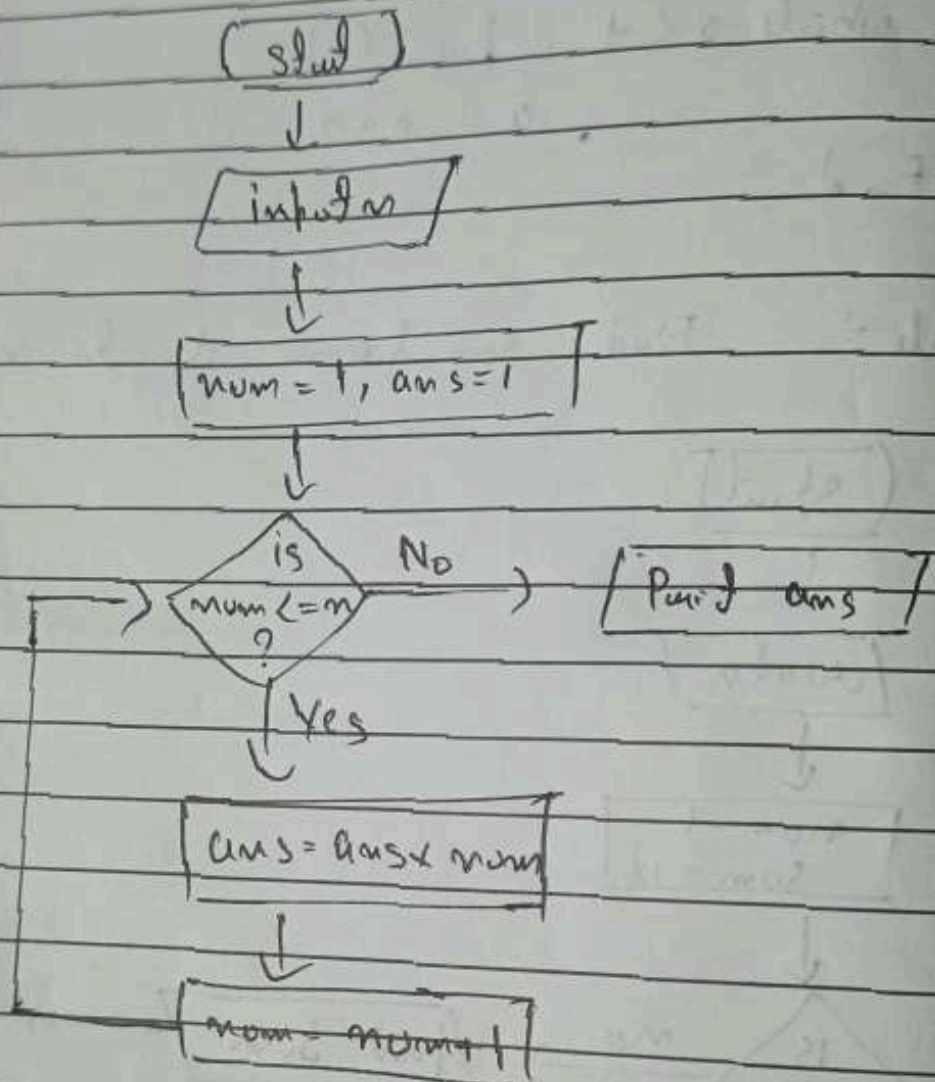 start
input n
num = 1, ans = 1
is
num <= n
?
No
Print ans
Yes
ans = ans x num
num = num + 1